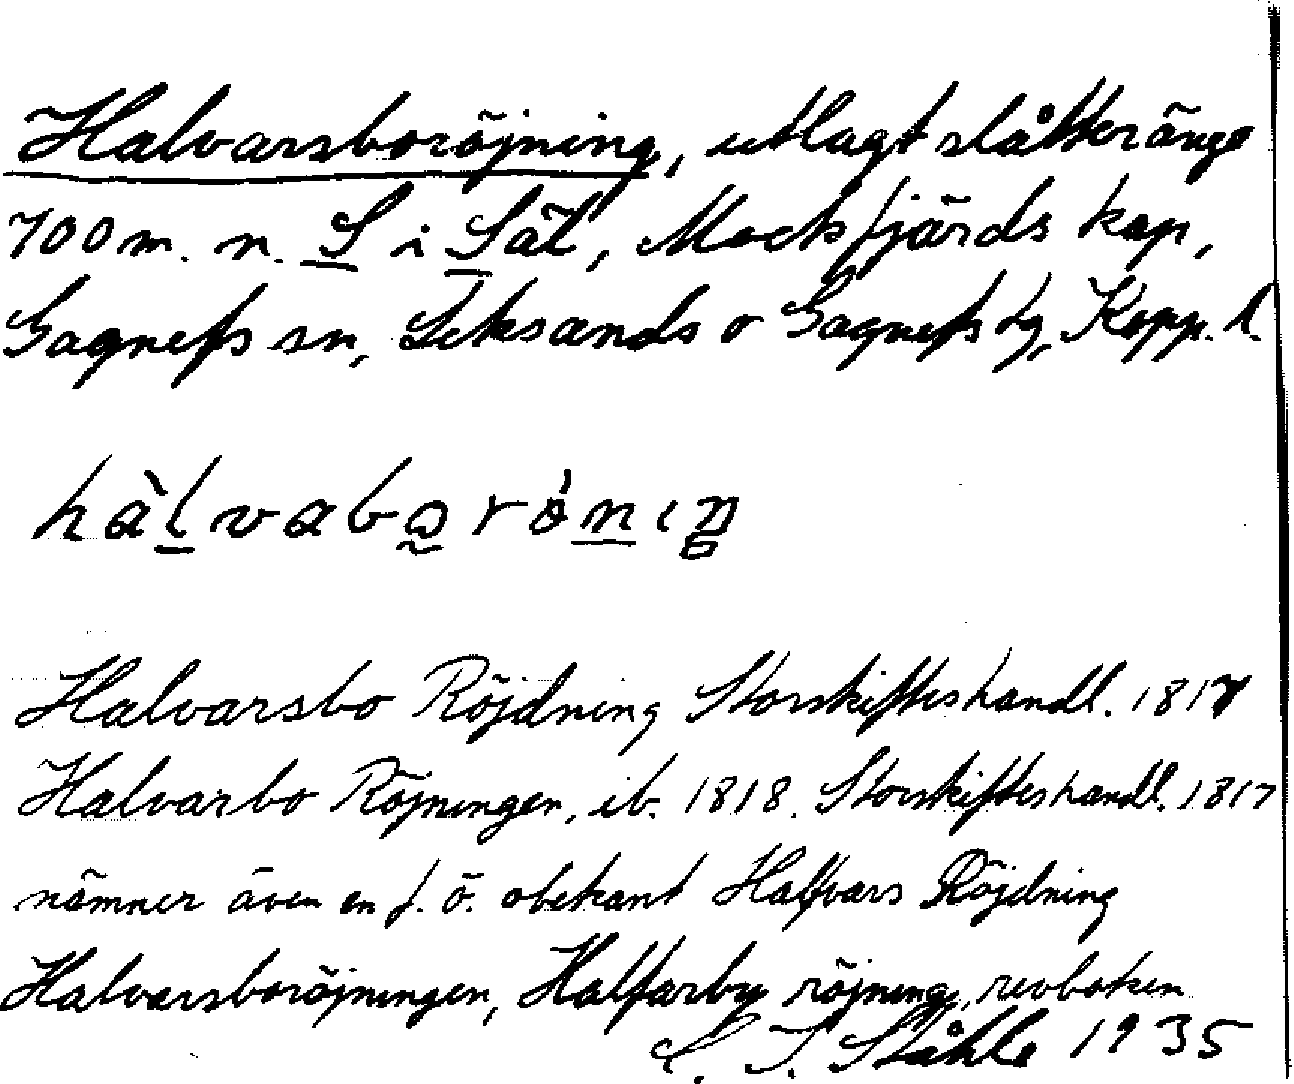 Halvarsboröjning, utlagt slåtteränge
700 m. n. S i Säl, Mockfjärds kap,
Gagnefs sn, Leksands o Gagnefs tg, Kopp. l.
Halvarsbo Röjdning Storskifteshandl. 1817
Halvarbo Röjningen, ib. 1818. Storskifteshandl. 1817
nämner även en f. ö. obekant Halfvars Röjdning
Halvarsboröjningen, Halfarby röjning, revboken
C. I. Ståhle 1935